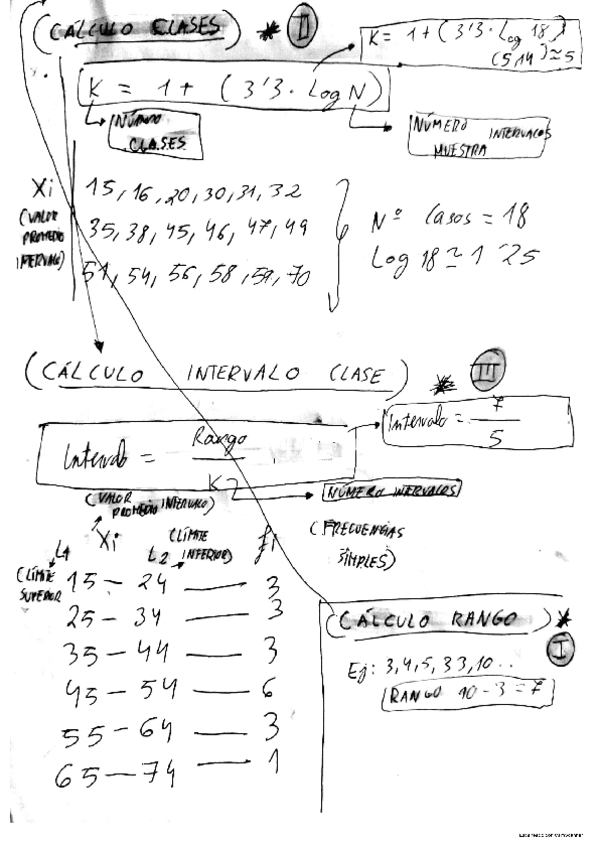 (CÁLCULO CLASES) * II
K = 1 + (3'3 · Log 18)
(5,14) ≃ 5
K = 1 + (3'3 · Log N)
NÚMERO
CLASES
NÚMERO INTERVALOS
MUESTRA
Xi
(VALOR
PROMEDIO
INTERVALO)
15, 16, 20, 30, 31, 32
35, 38, 45, 46, 47, 49
51, 54, 56, 58, 59, 70
Nº Casos = 18
Log 18 ≃ 1'25
(CÁLCULO INTERVALO CLASE) * III
Intervalo = Rango
K
Intervalo = 7
5
NÚMERO INTERVALOS
(VALOR
PROMEDIO INTERVALO)
L1 Xi L2 (LÍMITE
INFERIOR) fi
(FRECUENCIAS
SIMPLES)
(LÍMITE
SUPERIOR
15 — 24 — 3
25 — 34 — 3
35 — 44 — 3
45 — 54 — 6
55 — 64 — 3
65 — 74 — 1
(CÁLCULO RANGO) * I
Ej: 3, 4, 5, 33, 10 ..
RANGO 10 - 3 = 7